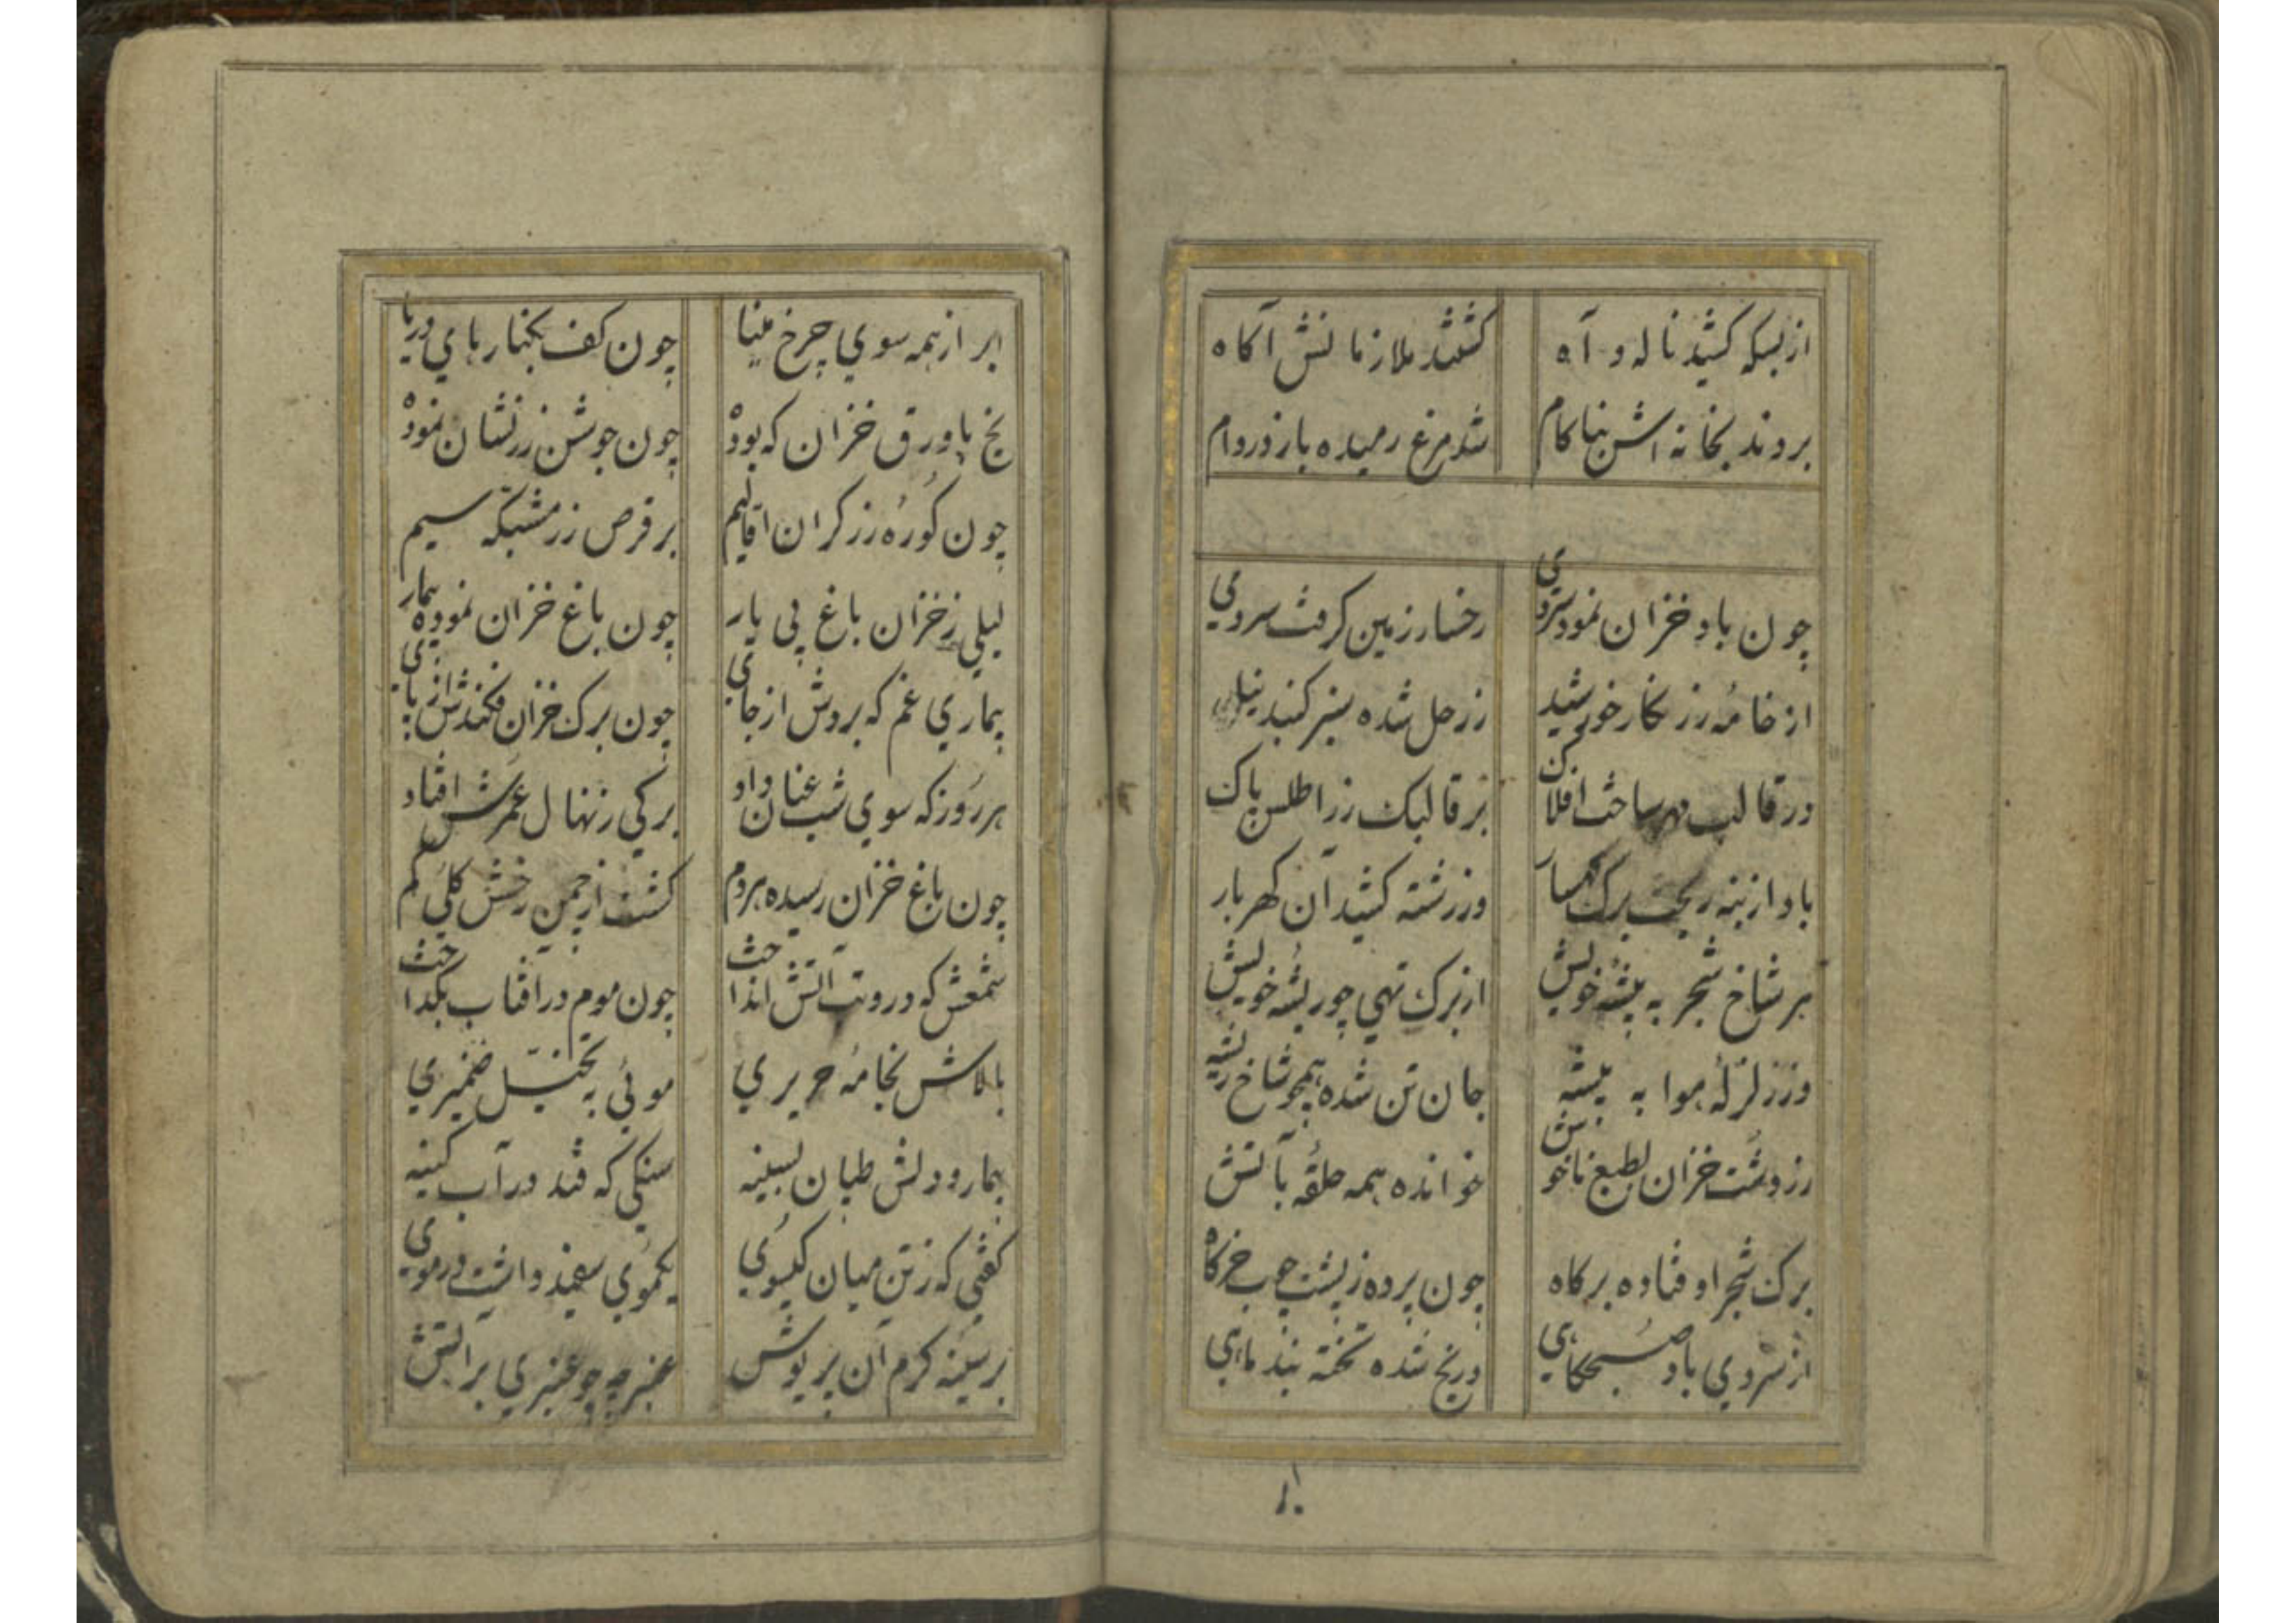 از بسکه کشید ناله و آه کشتند ملازمانش آکاه
بردند بخانه اش بناکام شد مرغ رمیده باز در دام
چون باد خزان نمود سردی رخسار زمین کرفت سردی
از خامه زر نکار خورشید زر حل شده بر کنبد
در قالب مهر ساحت افلاک بر قالبک زر اطلس پاک
باد از بنه ریخت برک کهسار وز رشته کشید آن کهربار
بر شاخ شجر به بیشه خویش از برک تهی چو ریشه خویش
وز زلزله هوا به بیشه جان تن شده همچو شاخ ریشه
زردشت خزان بطبع ناخوش خوانده همه حلقه بآتش
برک شجر اوفتاده بر کاه چون پرده ز پشت چوب خرکاه
از سردی باد صبحکاهی در یخ شده تخته بند ماهی
ابر از همه سوی چرخ مینا چون کف بکنارهای دریا
یخ با ورق خزان که بود چون جوشن زرنشان نمود
چون کوره زرکران اقالیم بر قرص زر مشبکه سیم
لیلی ز خزان باغ بی یار چون باغ خزان نموده بیمار
بیماری غم که بردش از جای چون برک خزان فکندش از پای
هر روز که سوی شب عنان داد برکی ز نهال عمرش افتاد
چون باغ خزان رسیده هر دم کشت از چمن رخش کلی کم
شمعش که در و تب آتش انداخت چون موم در آفتاب بکداخت
بالاش بجامه حریری موئی به تخیل ضمیری
بیمار و دلش طپان بسینه سنکی که فتد در آبکینه
کفتی که ز تن میان کیسوی یکموی سفید داشت در موی
بر سینه کرم آن پریوش عنبرچه چو عنبری بر آتش
ابر